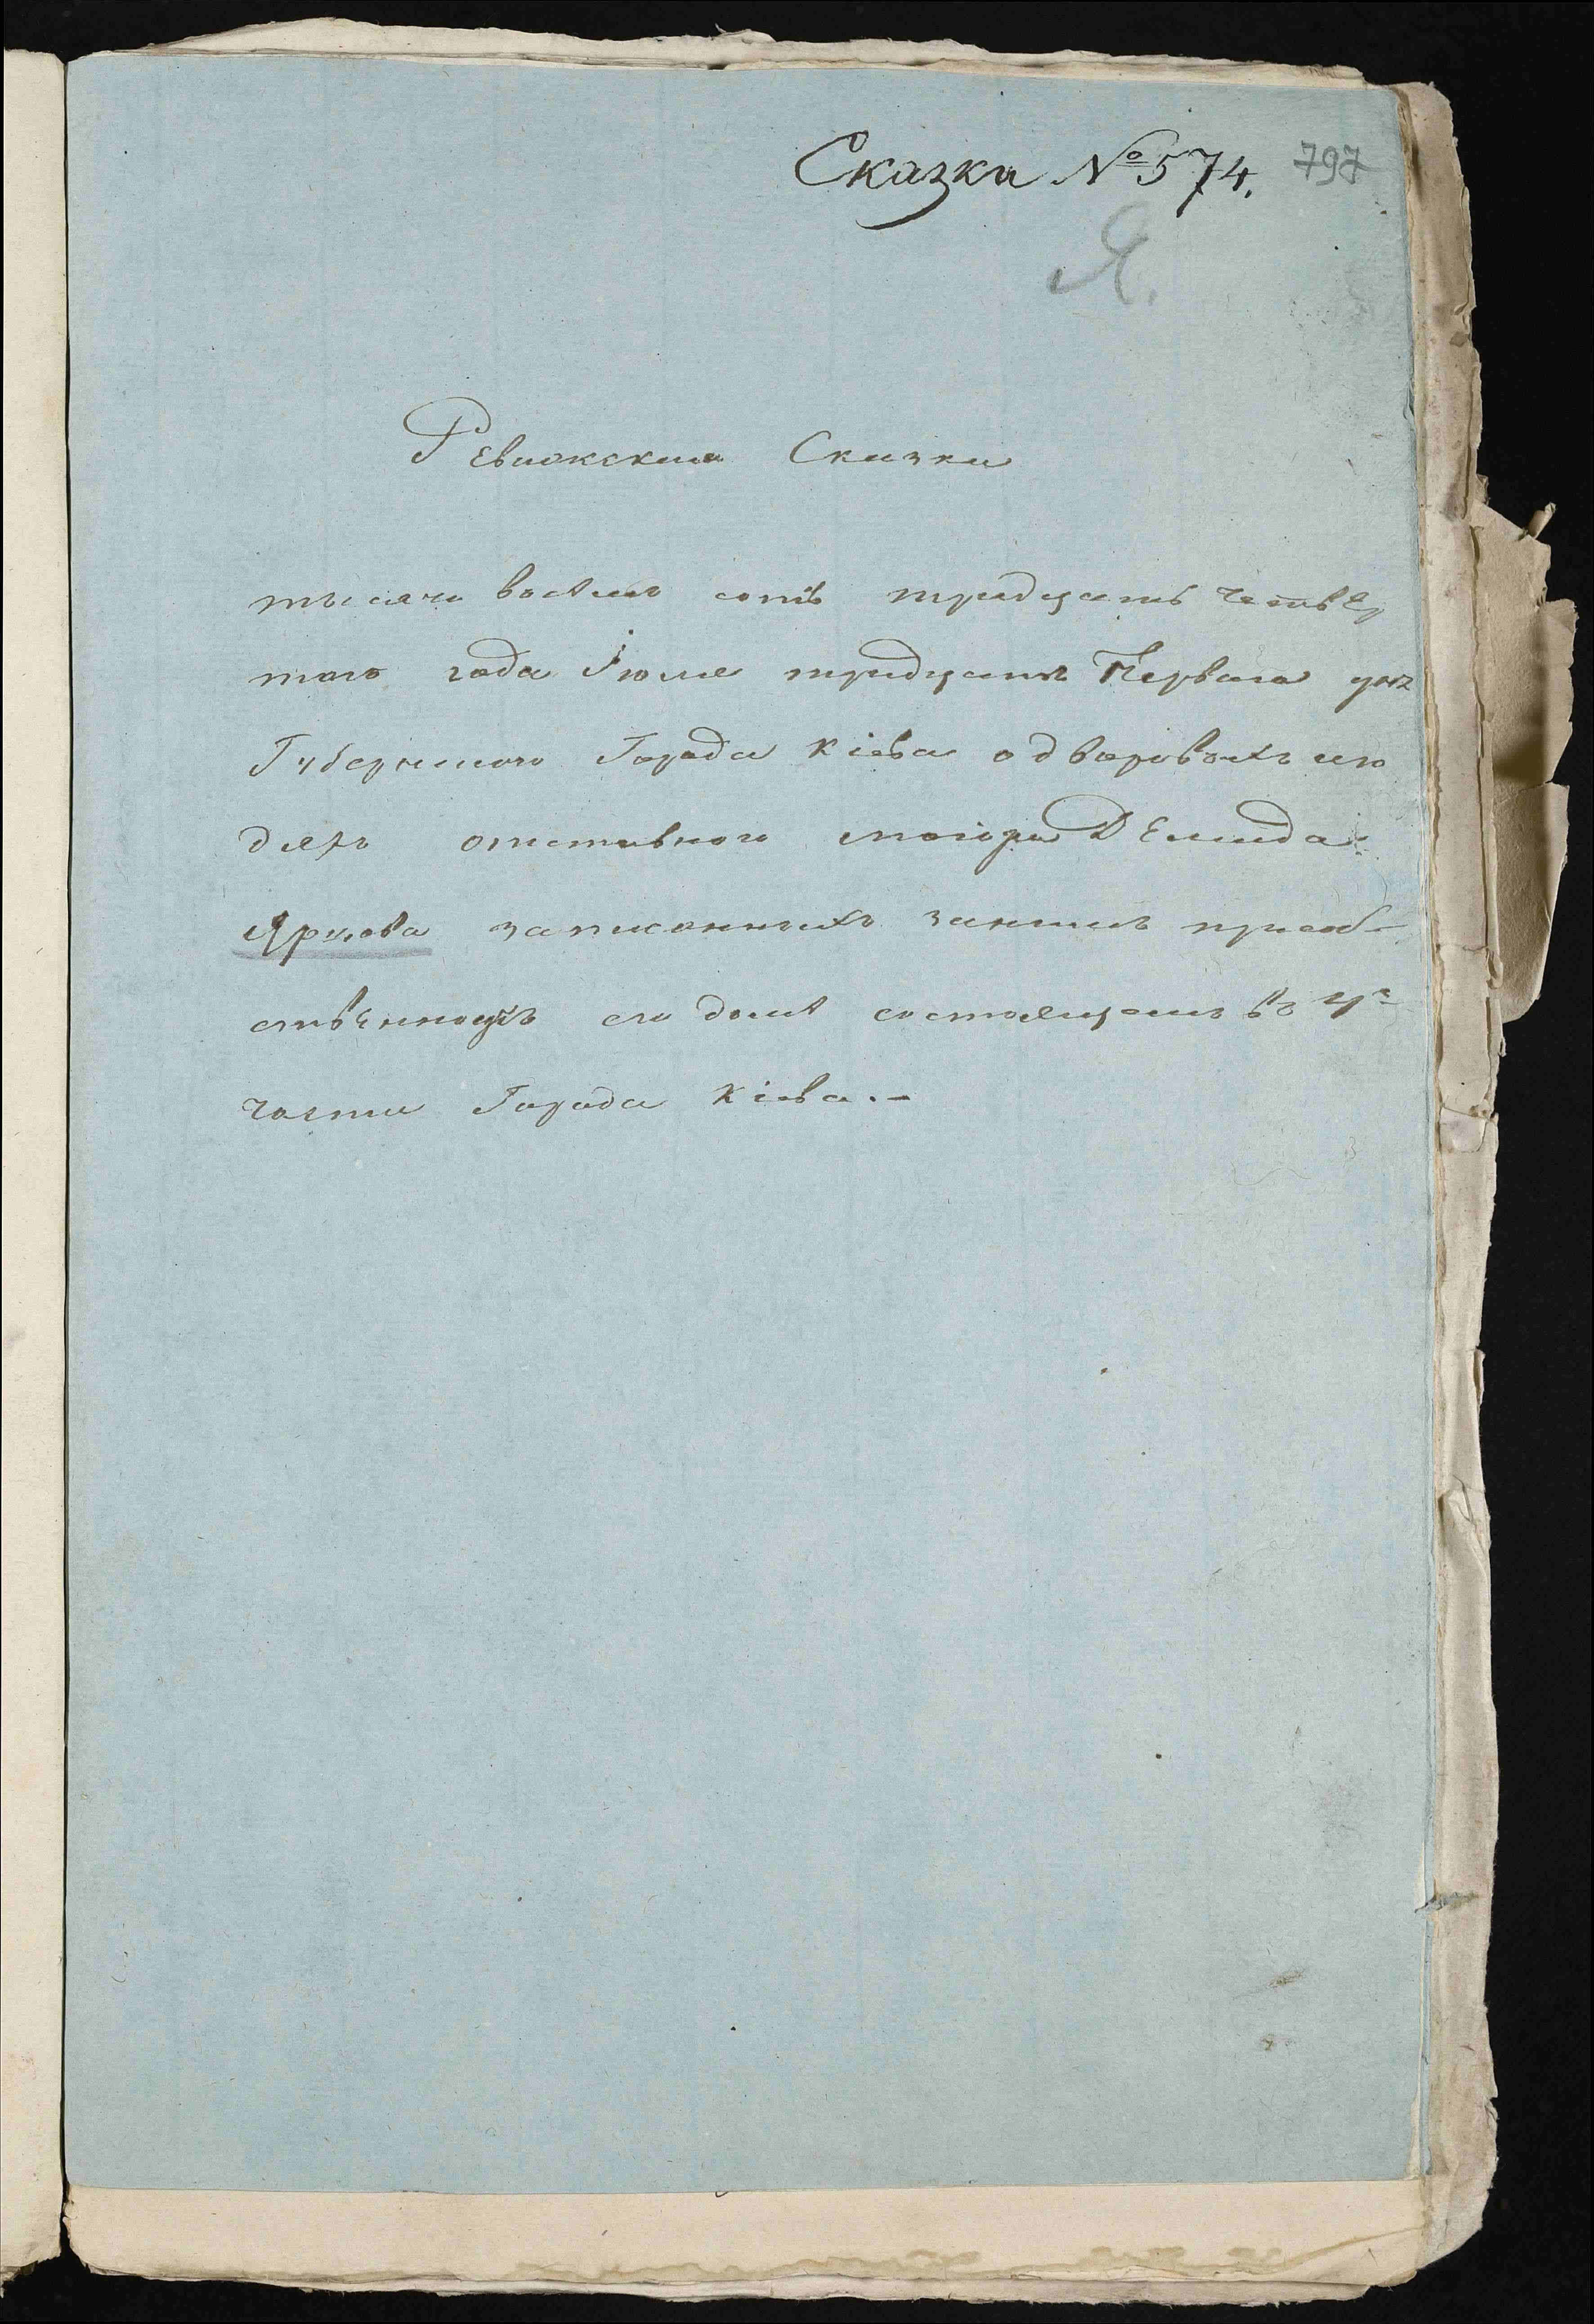 Сказка № 574. 797
Я.
Ревижская Сказка
тысяча восемь сотъ тридцать четвер
того года Іюля тридцать Перваго дня
Губернского Города Кіева о дворовыхъ лю
дяхъ отставного маіора Демида
Ярцова записанныхъ занимъ присоб-
ственномъ его домѣ состоящемъ въ
части Города Кіева.-